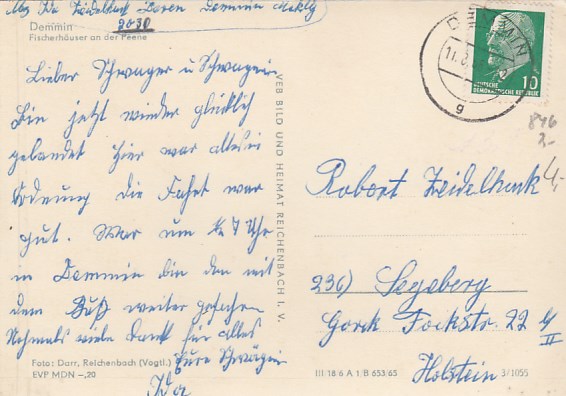 Demmin
2030
Fischerhäuser an der Peene
Lieber Schwager u Schwägerin
Bin jetzt wieder glücklich
gelandet hier war alles in
Ordnung die Fahrt war
gut. War um 7 Uhr
in Demmin bin dan mit
dem Buß weiter gefahren
Nochmals viele Dank für alles
Eure Schwägerin
Foto: Darr, Reichenbach (Vogtl.)
EVP MDN –,20
VEB BILD UND HEIMAT REICHENBACH I. V.
DEMMIN
11.3.
g
10
DEUTSCHE
DEMOKRATISCHE REPUBLIK
846
2,-
4,-
Robert Zeidelhack
236) Segeberg
Gorch Fockstr. 22
II
Holstein
III 18 6 A 1/B 653/65
3/1055